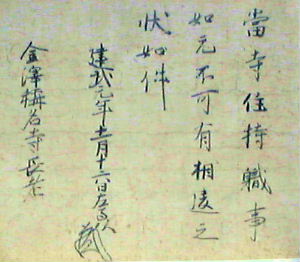 當寺住持職事
如元不可有相違之
状如件
建武元年十二月十六日左馬頭
金澤稱名寺長老